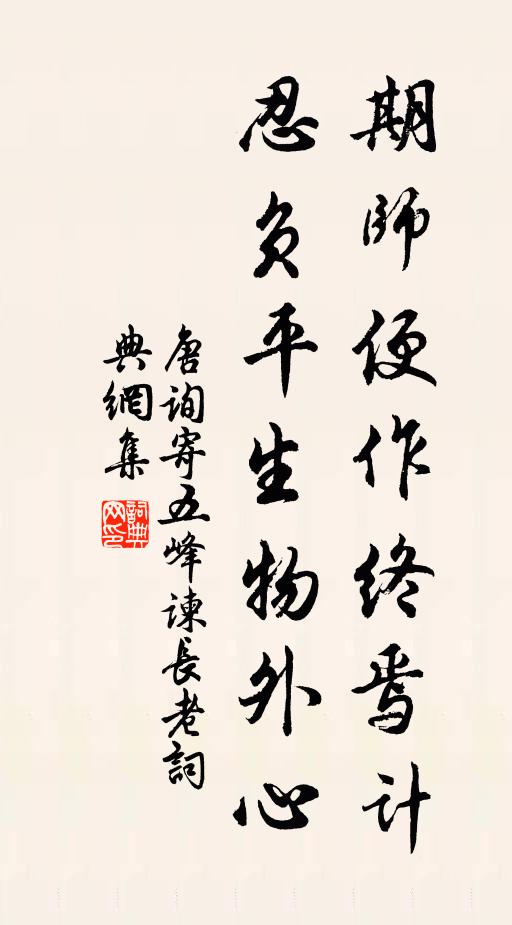 期師便作終焉計
忍負平生物外心
唐詢寄五峰諫長老詞
典網集
詞典网印